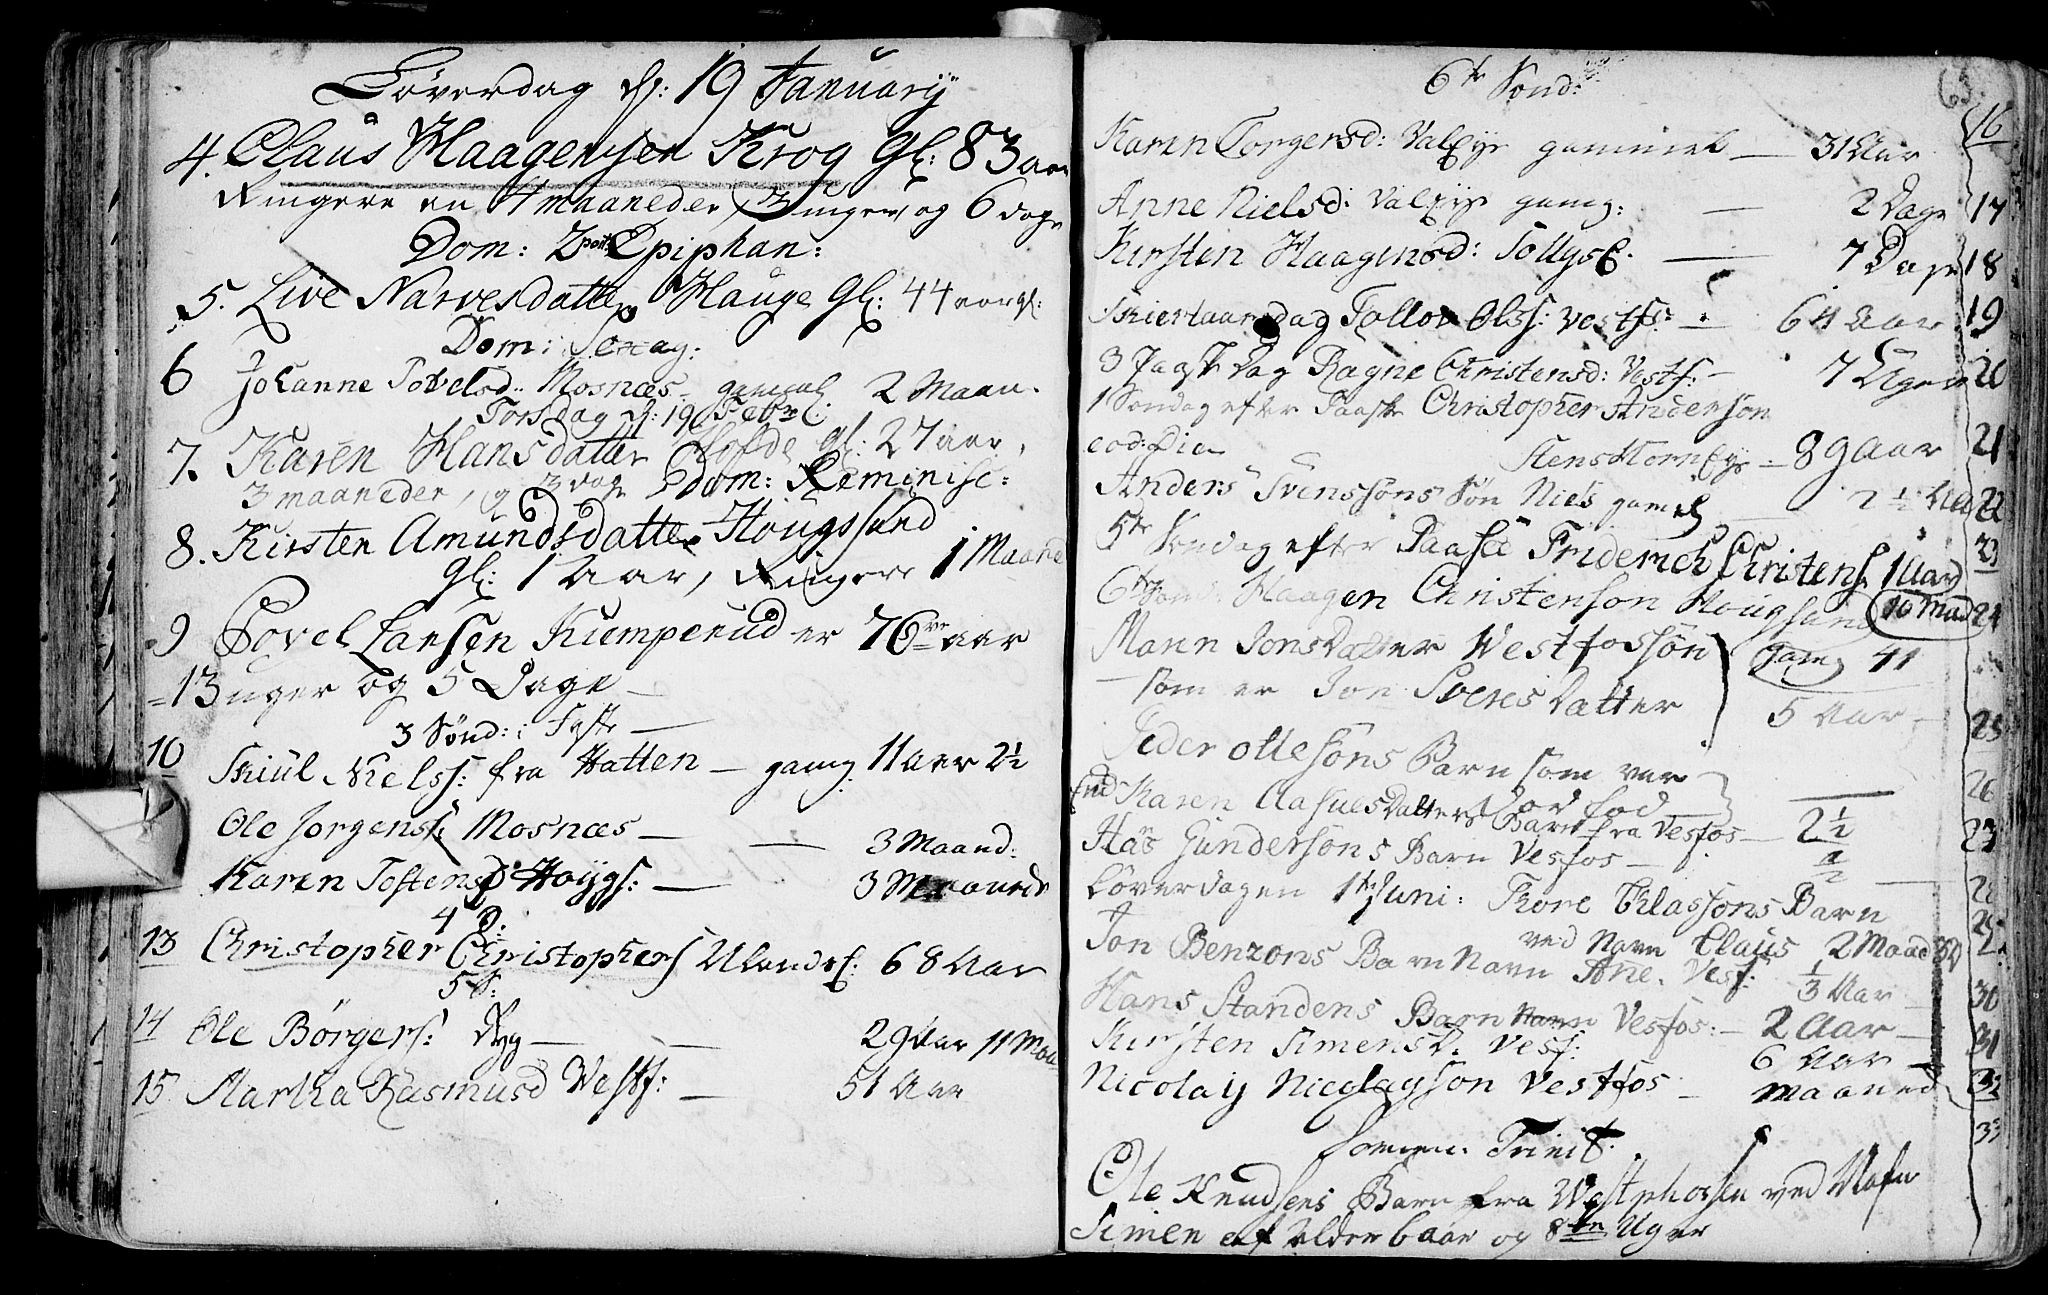 Löverdag d: 19 January
4. Claus Haagensen Krog gl: 83 aar
Ringere en 4 maaneder, 3 uger og 6 dage
Dom: 2 post Epiphan:
5. Live Narvesdatter Hauge gl: 44 aar gl:
Dom: Sexag:
6 Johanne Povelsd: Mosnæs gamel 2 Maan.
Torsdag d: 19 Febr:
7. Karen Hansdatter Hofde gl: 27 aar,
3 maaneder, og 3 dage Dom: Reminisc:
8. Kirsten Amundsdatter Hougssund
gl: 1 Aar, Ringere 1 Maaned
9 Povel Larsen Kumperud er 76 aar
13 uger og 5 Dage
3 Sønd: i Faste
10 Skiul Nielss: fra Hatten gamg 11 aar 2½
Ole Jorgenss: Mosnæs 3 Maand:
Karen Tostensd Høygs: 3 Maaneder
4 S:
13 Christopher Christophers Ulands: 68 Aar
5 S:
14 Ole Börgers: Ryg 29 Aar 11 Maa
15. Martha Rasmusd Vestf: 51 Aar
63.
6te Sond:
16
Karen Torgersd: gammel 31 Aar
Anne Nielsd: gamg: 2 Dage 17
Kirsten Haagensd: 7 Dage 18
Skiertaarsdag Tollov Olss: Vestfs: 64 Aar 19
3 Paaske Dag Ragne Christensd: Vestf: 7 Uger 20
1 Søndag efter Paaske Christopher Anderson
eod: Die 89 Aar 21
Anders Svenssöns Søn Niels gamel 2½ Aar 22
5te Søndag efter Paaske Friderich Christens. 1 Aar 23
6te Sond: Haagen Christenson Hougsund 10 Maa 24
Maren Jonsdatter Westfossön gamg 41
som er Jon Svens Datter 5 Aar 25
Peder Ottesöns Barn som var
død fød 26
Karen Aasulsdatters Barn fra Vesfos 2½
Hans Gundersöns Barn Vesfos ½ 23
Löverdagen 1te Juni: Tkore Classons Barn 28
ved Navn Claus 2 Maad 29
Jon Benzons Barn Navn Ane. Vesf: ⅓ Aar 30
Hans Standens Barn Navn Vesfos: 2 Aar
Kirsten Simensd. Vesf: 6 Aar 31
Nicolaij Nicolayson Vestfos maaned 32
33
Trinit:
Ole Knudsens Barn fra Westphossen ved Nafn
Simen af Alder 6 aar og 8 Uger